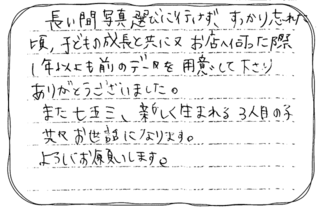 長い間写真選びに行けず、すっかり忘れた
頃、子どもの成長と共に又お店へ伺った際
1年以上も前のデータを用意して下さり
ありがとうございました。
また七五三、新しく生まれる3人目の子
共々お世話になります。
よろしくお願いします。